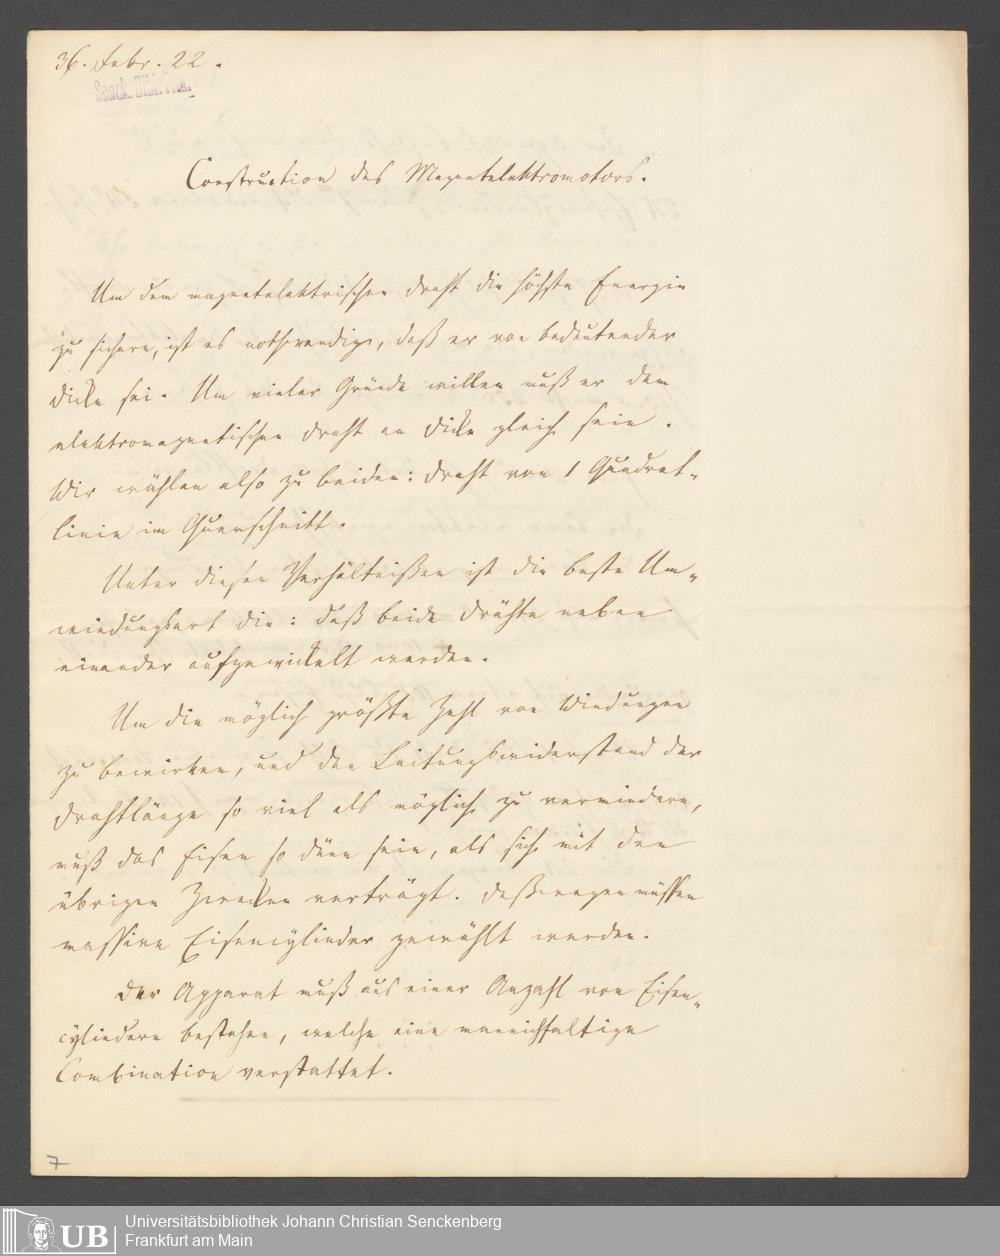 36. Febr. 22.
Senck. Bibl. Ffm.
Construction des Magnetelektromotors.
Um dem magnetelektrischen Draht die höchste Energie
zu sichern, ist es nothwendig, daß er von bedeutender
Dicke sei. Um vieler Gründe willen muß er dem
elektromagnetischen Draht an Dicke gleich sein.
Wir wählen also zu beiden: Draht von 1 Quadrat-
linie im Querschnitt.
Unter diesen Verhältnißen ist die beste Um-
windungsart die: daß beide Drähte neben
einander aufgewickelt werden.
Um die möglich größte Zahl von Windungen
zu bewirken, und den Leitungswiderstand der
Drahtlänge so viel als möglich zu vermindern,
muß das Eisen so dünn sein, als sich mit den
übrigen Zwecken verträgt. Deßwegen müssen
massive Eisencylinder gewählt werden.
Der Apparat muß aus einer Anzahl von Eisen-
cylindern bestehen, welche eine mannichfaltige
Combination verstattet.
7
UB
Universitätsbibliothek Johann Christian Senckenberg
Frankfurt am Main